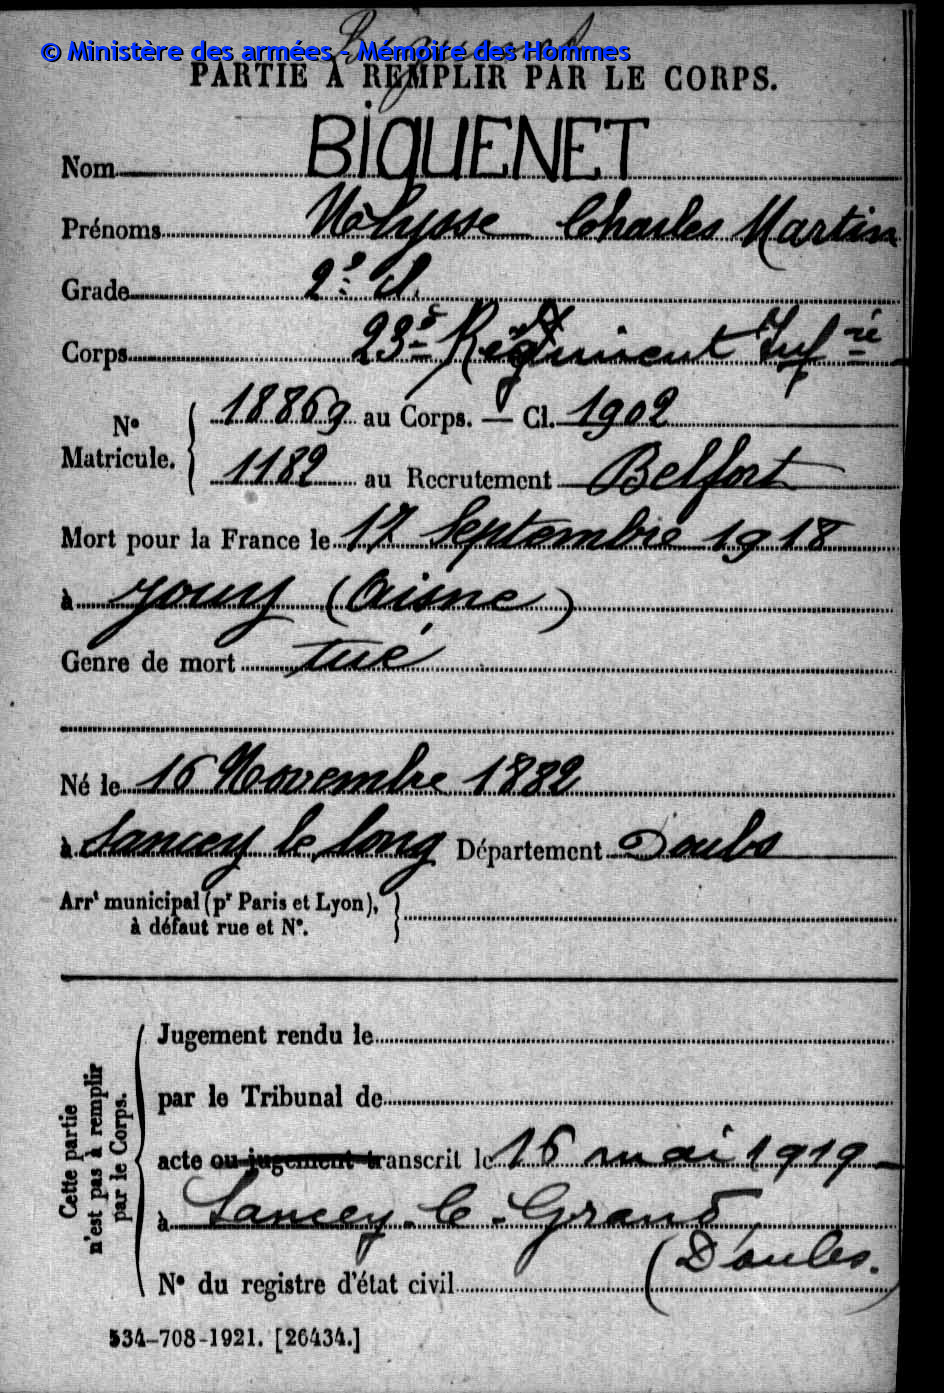 Biquenet
© Ministère des armées - Mémoire des Hommes
PARTIE A REMPLIR PAR LE CORPS.
Nom BIQUENET
Prénoms Charles Martin
Grade 2e Cl.
Corps 23e Régiment Infrie
No Matricule. 18869 au Corps. — Cl. 1902
1182 au Recrutement Belfort
Mort pour la France le 17 Septembre 1918
à Jouy (Aisne)
Genre de mort tué
Né le 16 Novembre 1882
à Sancey le long Département Doubs
Arrt municipal (pr Paris et Lyon),
à défaut rue et No.
Cette partie
n'est pas à remplir
par le Corps.
Jugement rendu le
par le Tribunal de
acte ou jugement transcrit le 16 mai 1919
à Sancey-le-Grand
(Doubs.
No du registre d'état civil
534-708-1921. [26434.]